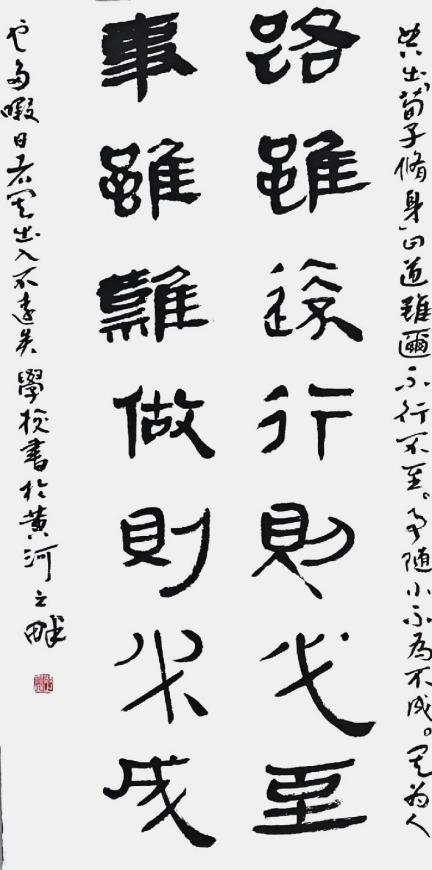 其出荀子脩身曰道雖邇不行不至。事随小不為不成。其為人
路雖遠行則必至
事雖難做則必成
也多暇日者其出入不遠矣 學校書於黃河之畔